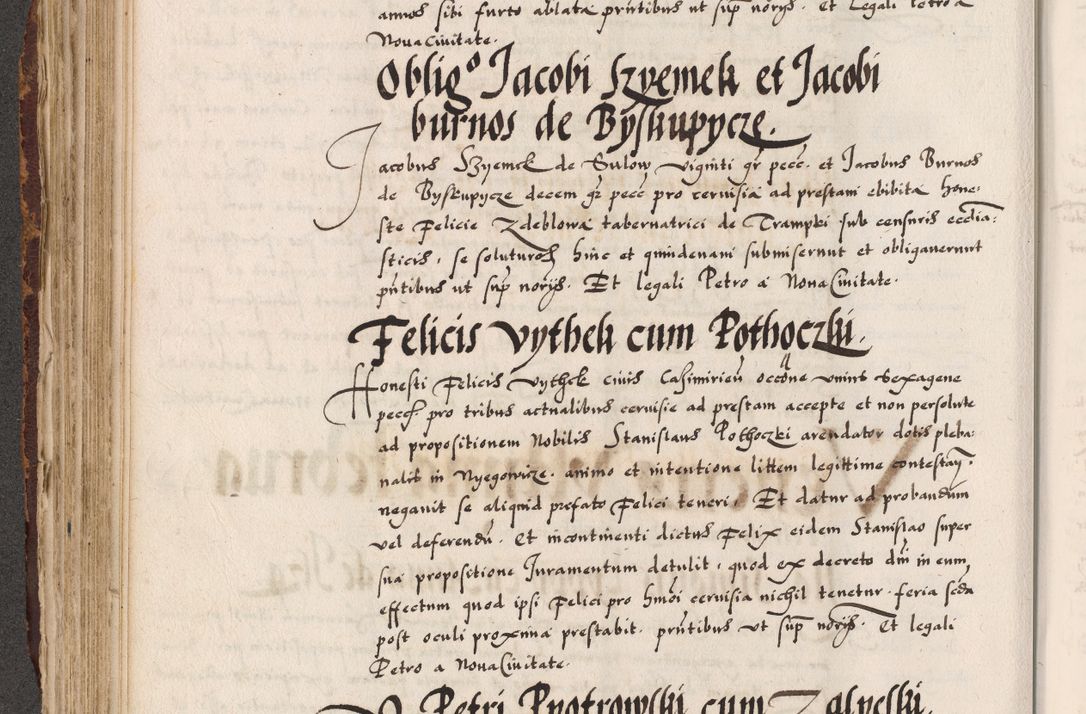 annos sibi furto ablata pñtibus ut sup̃ norijs. Et legali Petro a
Nova Civitate.
Oblig⁰ Jacobi Szyemek et Jacobi
burnos de Byskupycze.
Jacobus Szyemek de Sulow viginti gr̃ pecc̃. et Jacobus Burnos
de Byskupycze decem gr̃ pecc̃ pro cervisia ad prestam ebibita hone-
ste Felicie Zdeblowa tabernatrici de Trampki sub censuris ecclia-
sticis, se soluturos hinc et quindenam submiserunt et obligaverunt
pñtibus ut sup̃ norijs. Et legali Petro a Nova Civitate.
Felicis Vythek cum Pothoczki.
Honesti Felicis Vythek civis Casimirien̄ occõne unius sexagene
pecc̃ pro tribus actualibus cervisie ad prestam accepte et non persolute
ad propositionem Nobilis Stanislaus Pothoczki arendator dotis pleba-
nalis in Nyegowicze. animo et intentione littem legittime contestañ.
negavit se aliquid prefato Felici teneri. Et datur ad probandum
vel deferendũ. Et incontinenti dictus Felix eidem Stanislao super
sua propositione Juramentum detulit, quod ex decreto dñi in eum
effectum quod ipsi Felici pro hmõi cervisia nichil tenetur. feria scda
post oculi proxima prestabit. pñtibus ut sup̃ norijs. Et legali
Petro a Nova Civitate.
Petri Pyotrowski cum Zalyeski.